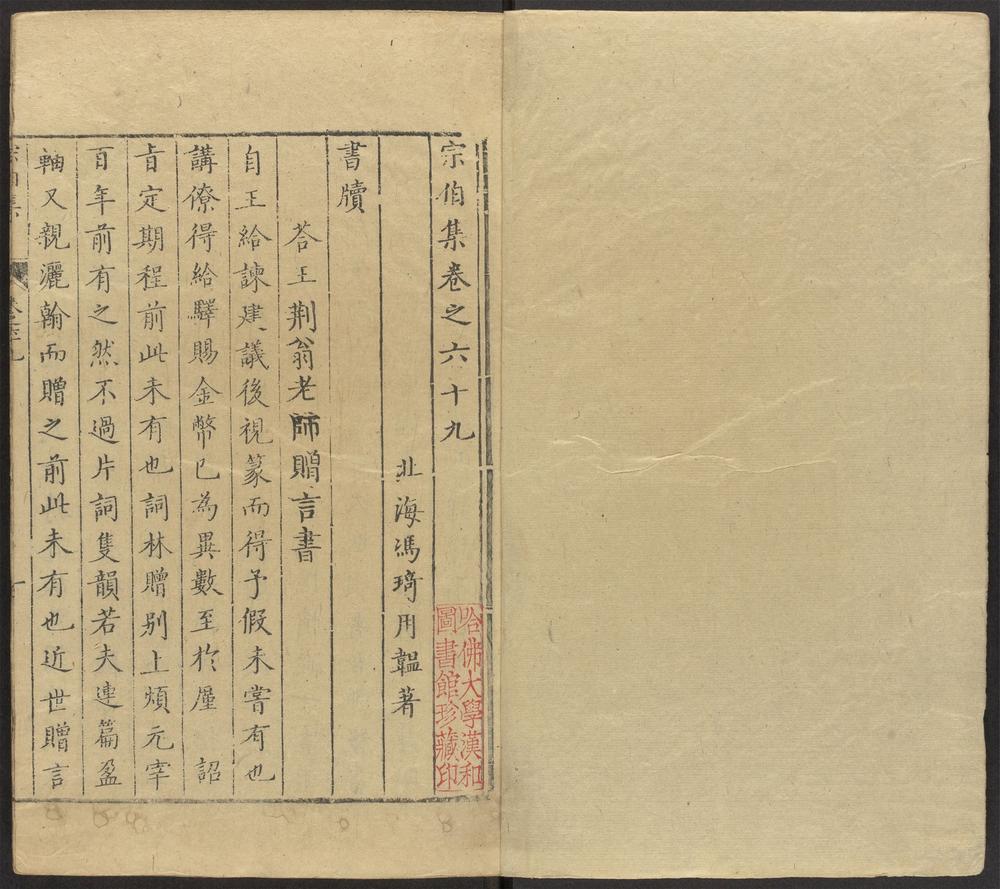 宗伯集卷之六十九
哈佛大學漢和
圖書館珍藏印
北海馮琦用韞著
書牘
荅王荆翁老師贈言書
自王給諫建議後視篆而得予假未嘗有也
講僚得給驛賜金幣巳為異數至於屢 詔
㫖定期程前此未有也詞林贈别上煩元宰
百年前有之然不過片詞隻韻若夫連篇盈
軸又親灑翰而贈之前此未有也近世贈言